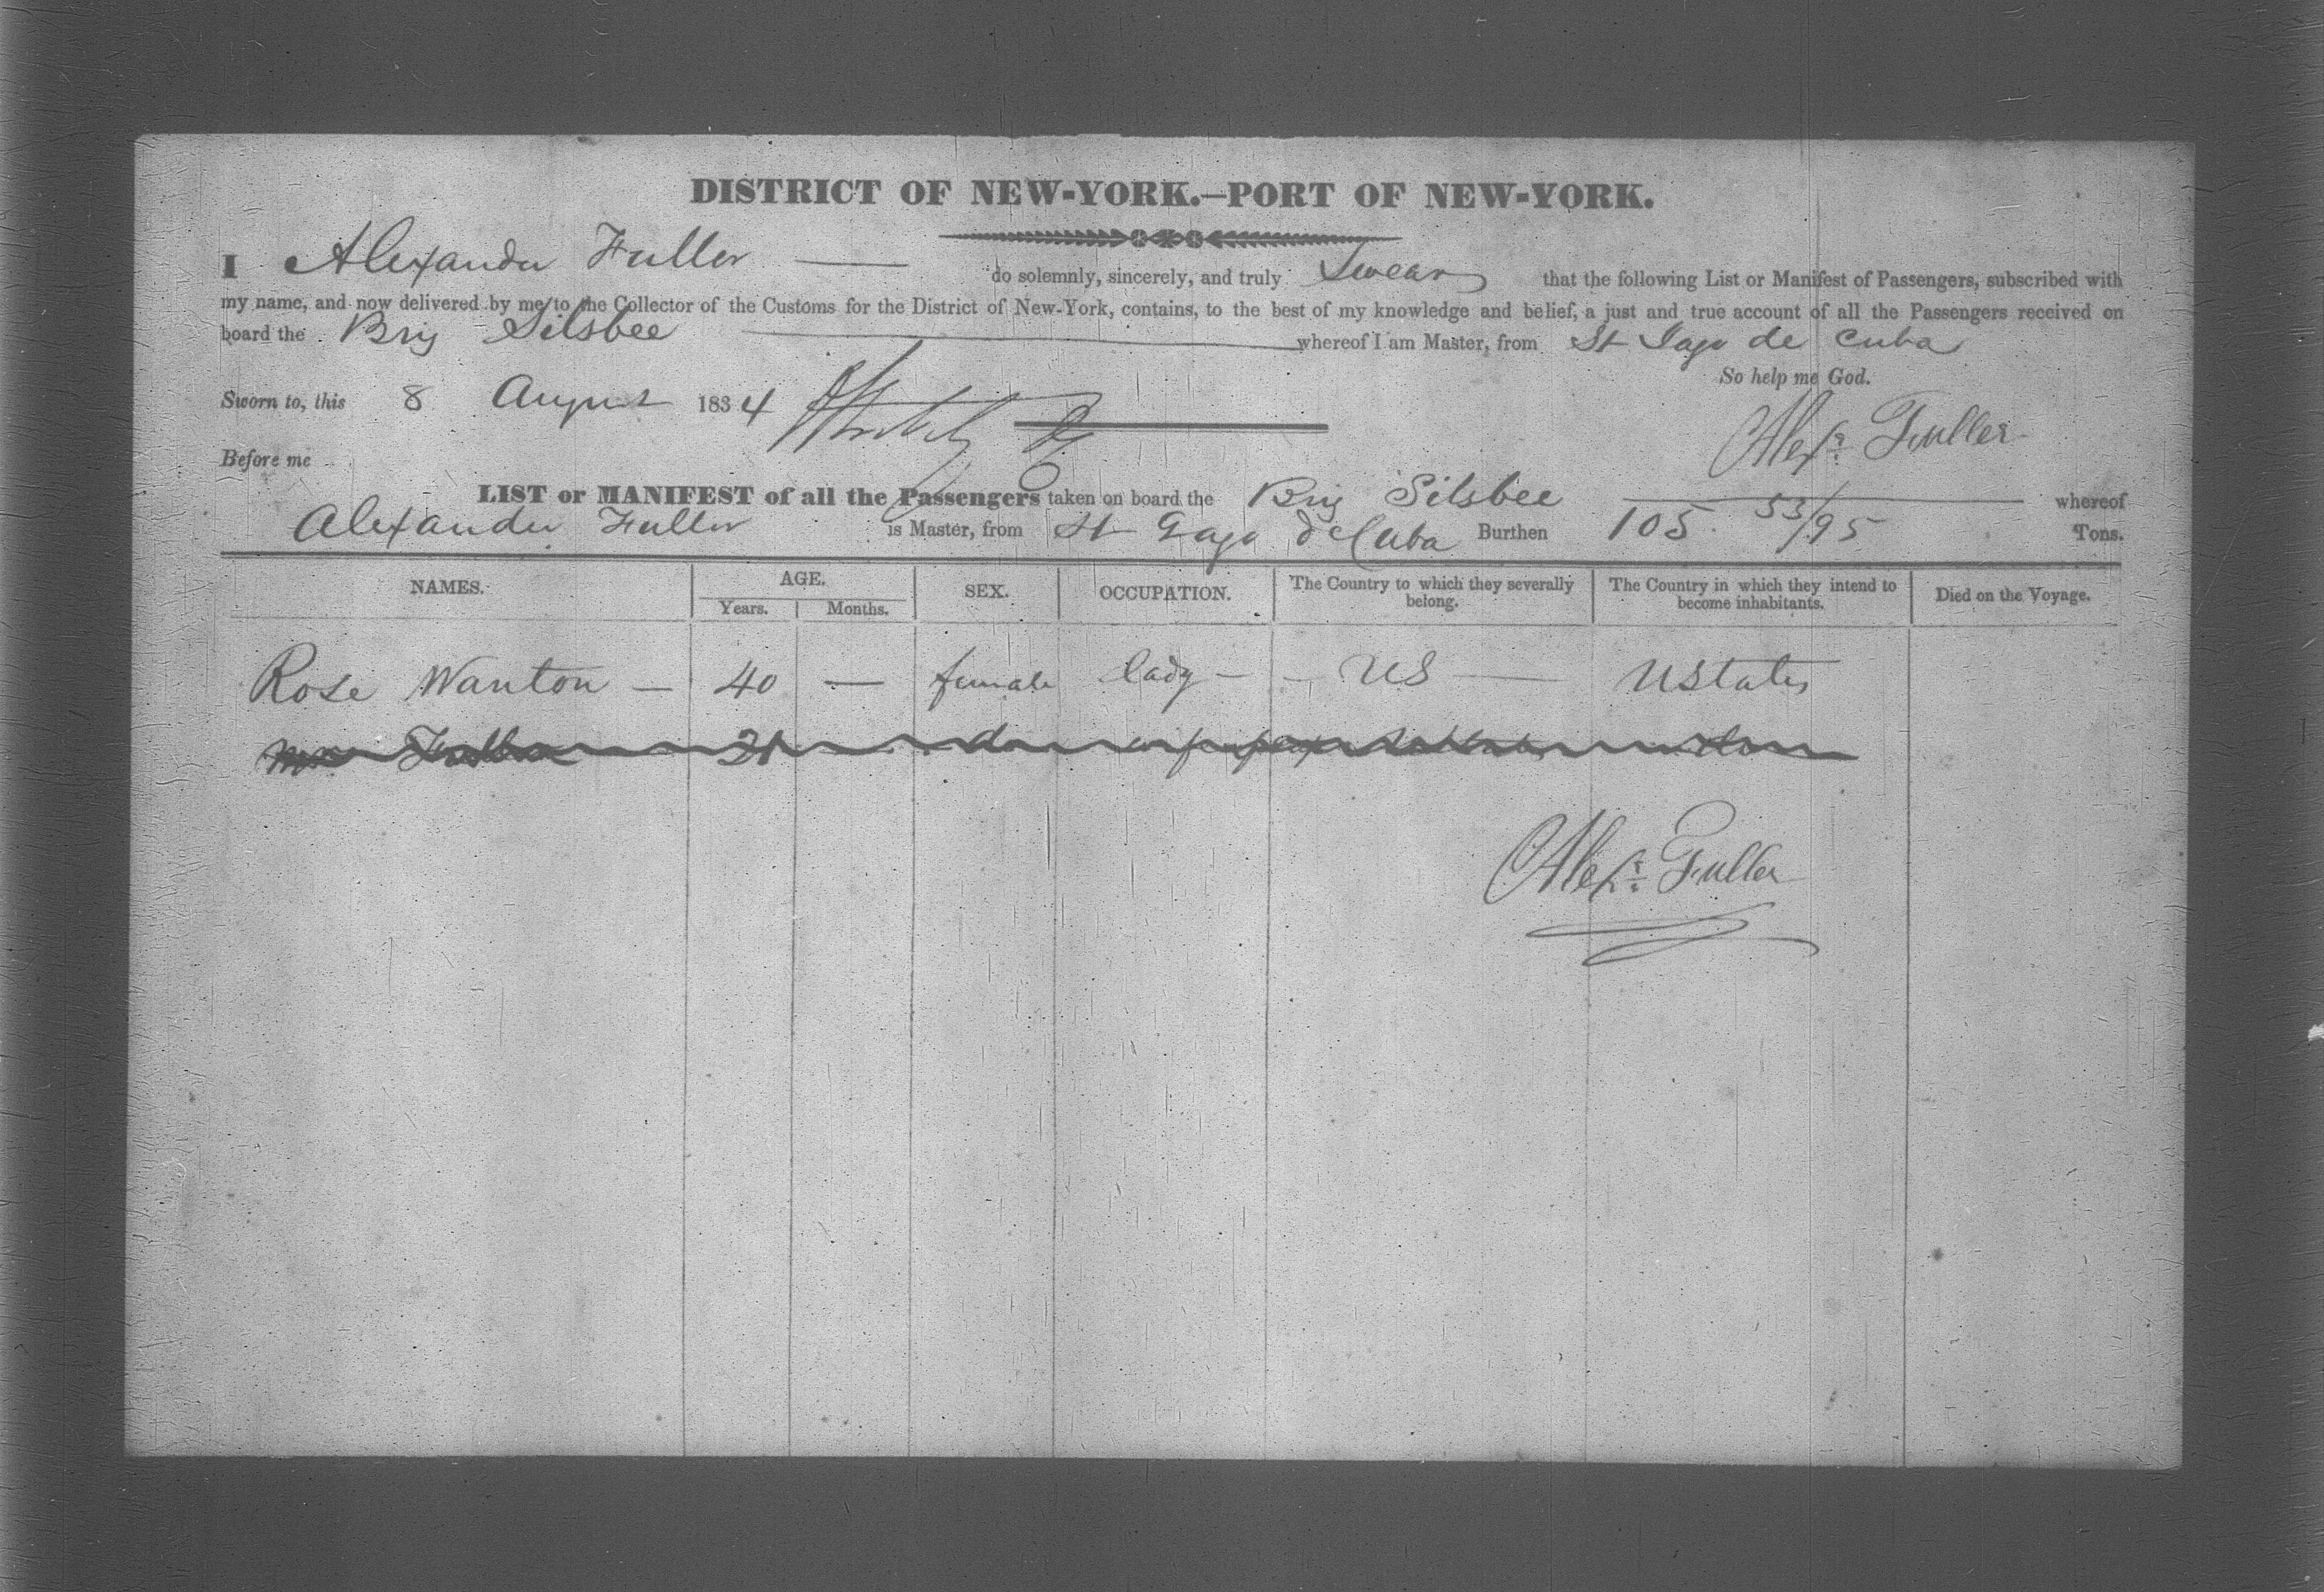 DISTRICT OF NEW-YORK.—PORT OF NEW-YORK.
I Alexander Fuller — do solemnly, sincerely, and truly Swear that the following List or Manifest of Passengers, subscribed with
my name, and now delivered by me to the Collector of the Customs for the District of New-York, contains, to the best of my knowledge and belief, a just and true account of all the Passengers received on
board the Brig Silsbee — whereof I am Master, from St Iago de Cuba
So help me God.
Sworn to, this 8 August 1834
Alexr Fuller
Before me
LIST or MANIFEST of all the Passengers taken on board the Brig Silsbee — whereof
Alexander Fuller is Master, from St Iago de Cuba Burthen 105 53/95 Tons.
NAMES. AGE. SEX. OCCUPATION. The Country to which they severally belong. The Country in which they intend to become inhabitants. Died on the Voyage.
Years. Months.
Rose Wanton — 40 — female lady — — US — UStates
Fuller 21 do
Alexr Fuller